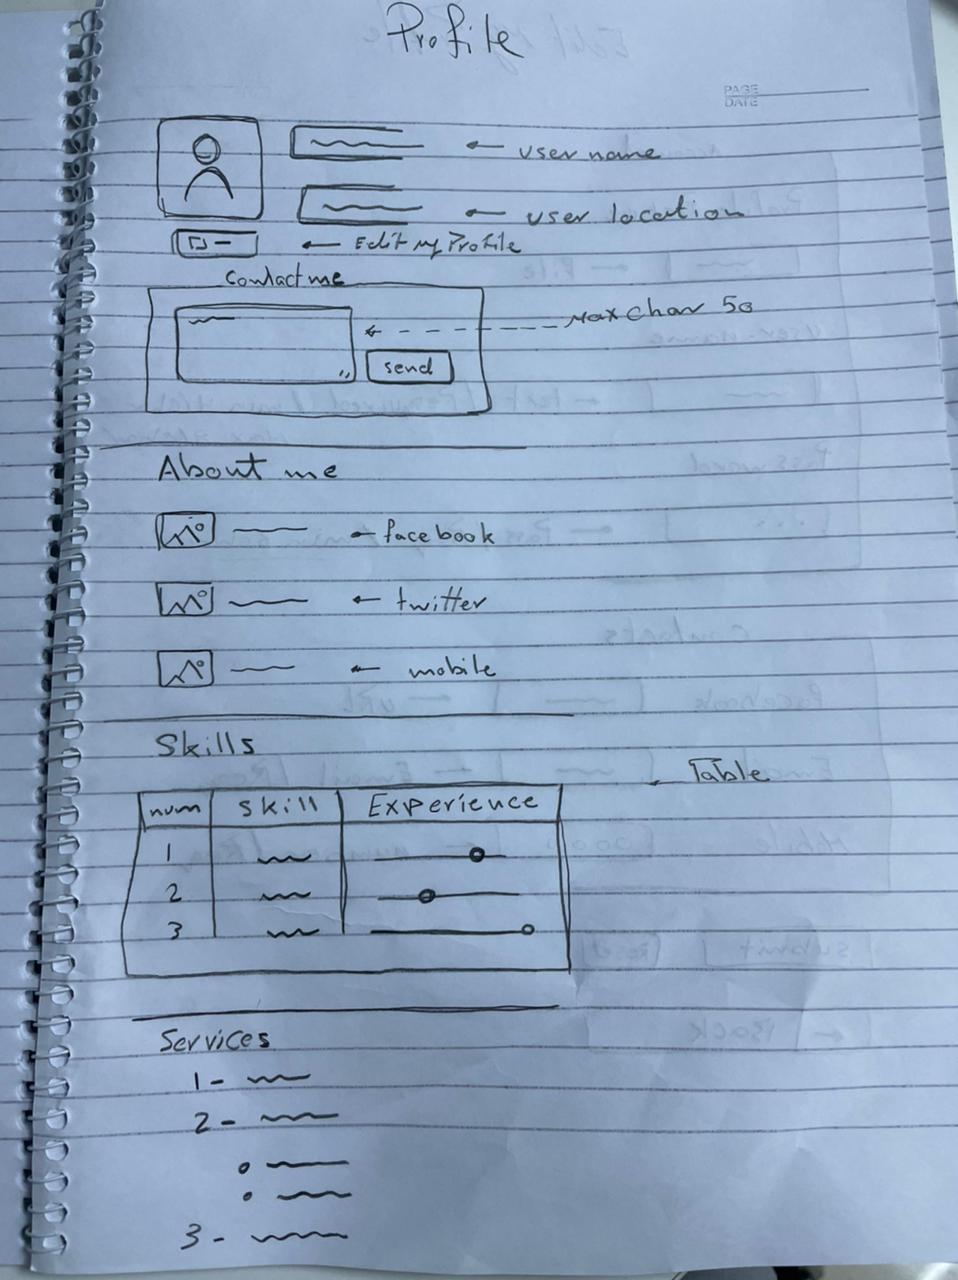 Profile
PAGE
DATE
user name
user location
Edit My Profile
Contact me
Max char 50
send
About me
facebook
twitter
mobile
Skills
Table
num skill Experience
1
2
3
Services
1-
2-
3-